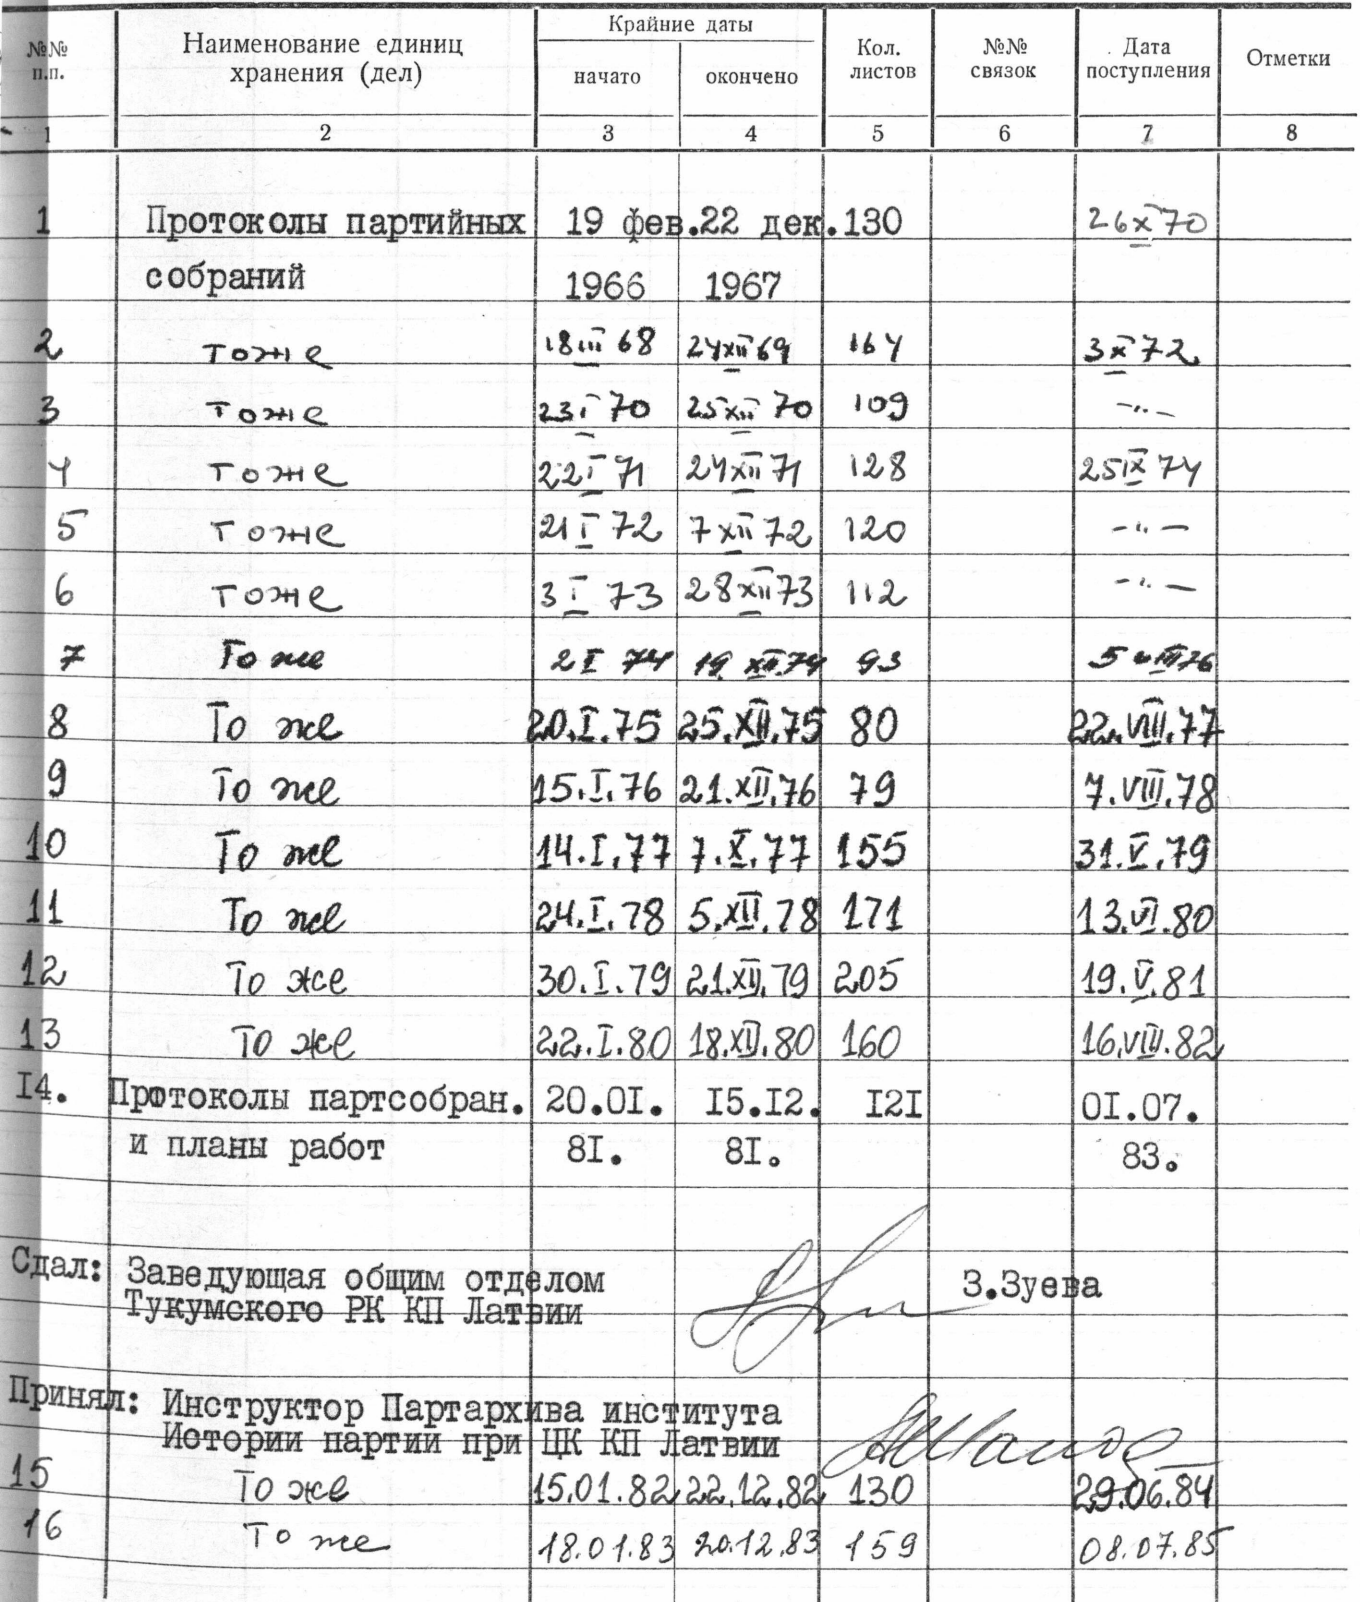 №№ п.п. Наименование единиц хранения (дел) Крайние даты начато окончено Кол. листов №№ связок Дата поступления Отметки
1 2 3 4 5 6 7 8
1 Протоколы партийных 19 фев. 22 дек. 130 26 X 70
собраний 1966 1967
2 тоже 18 III 68 24 XII 69 164 3 X 72
3 тоже 23 I 70 25 XII 70 109 -"-
4 тоже 22 I 71 24 XII 71 128 25 IX 74
5 тоже 21 I 72 7 XII 72 120 -"-
6 тоже 3 I 73 28 XII 73 112 -"-
7 То же 2 I 74 19 XII 74 93 5 76
8 То же 20.I.75 25.XII.75 80 22.VIII.77
9 То же 15.I.76 21.XII.76 79 7.VIII.78
10 То же 14.I.77 7.X.77 155 31.V.79
11 То же 24.I.78 5.XII.78 171 13.VI.80
12 То же 30.I.79 21.XII.79 205 19.V.81
13 То же 22.I.80 18.XII.80 160 16.VIII.82
I4. Протоколы партсобран. 20.0I. I5.I2. I2I 0I.07.
и планы работ 8I. 8I. 83.
Сдал: Заведующая общим отделом З.Зуева
Тукумского РК КП Латвии
Принял: Инструктор Партархива института
Истории партии при ЦК КП Латвии
15 То же 15.01.82 22.12.82 130 29.06.84
16 То же 18.01.83 20.12.83 159 08.07.85